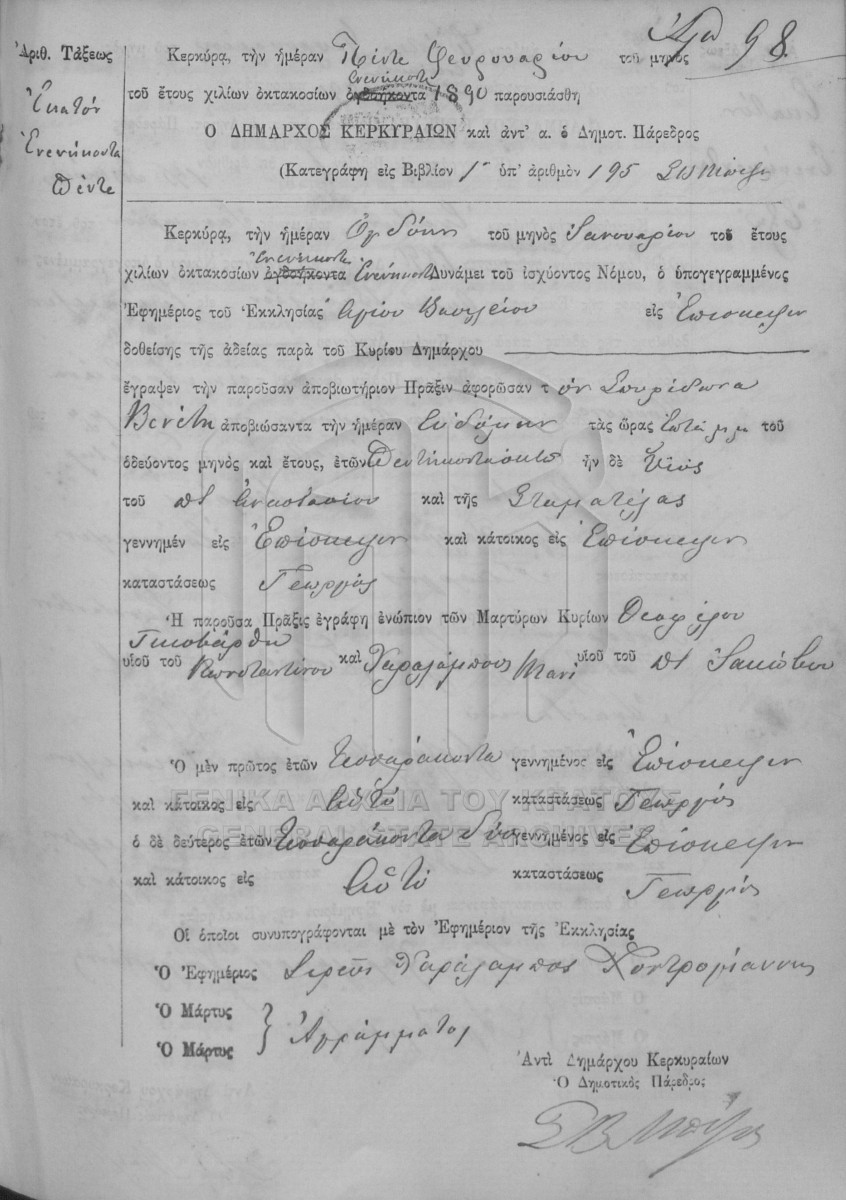 98.
Ἀριθ. Τάξεως
Ἑκατόν
Ἐνενήκοντα
Πέντε
Κερκύρα, τὴν ἡμέραν Πέντε Φευρουαρίου τοῦ μηνὸς
Ἐνενήκοντα
τοῦ ἔτους χιλίων ὀκτακοσίων ὀγδοήκοντα 1890 παρουσιάσθη
Ο ΔΗΜΑΡΧΟΣ ΚΕΡΚΥΡΑΙΩΝ καὶ ἀντ' α. ὁ Δημοτ. Πάρεδρος
(Κατεγράφη εἰς Βιβλίον 1 ὑπ' ἀριθμὸν 195
Κερκύρα, τὴν ἡμέραν Ὀγδόην τοῦ μηνὸς Ἰανουαρίου τοῦ ἔτους
Ἐνενήκοντα
χιλίων ὀκτακοσίων ὀγδοήκοντα Ἐνενήκοντα Δυνάμει τοῦ ἰσχύοντος Νόμου, ὁ ὑπογεγραμμένος
Ἐφημέριος τοῦ Ἐκκλησίας Ἁγίου Βασιλείου εἰς Ἐπίσκεψιν
δοθείσης τῆς ἀδείας παρὰ τοῦ Κυρίου Δημάρχου
ἔγραψεν τὴν παροῦσαν ἀποβιωτήριον Πρᾶξιν ἀφορῶσαν τ όν Σπυρίδωνα
Βενέτη ἀποβιώσαντα τὴν ἡμέραν Εὐδόμην τὰς ὥρας ἑπτά μ.μ. τοῦ
ὁδεύοντος μηνὸς καὶ ἔτους, ἐτῶν Πεντήκοντα ὀκτώ ἦν δὲ Υἱός
τοῦ Ἀναστασίου καὶ τῆς Σταματέλας
γεννημέν εἰς Ἐπίσκεψιν καὶ κάτοικος εἰς Ἐπίσκεψιν
καταστάσεως Γεωργός
Ἡ παροῦσα Πρᾶξις ἐγράφη ἐνώπιον τῶν Μαρτύρων Κυρίων Θεοφίλου
υἱοῦ τοῦ Κωνσταντίνου καὶ Χαραλάμπους υἱοῦ τοῦ Ἰακώβου
Ὁ μὲν πρῶτος ἐτῶν Τεσσαράκοντα γεννημένος εἰς Ἐπίσκεψιν
καὶ κάτοικος εἰς Αὐτό καταστάσεως Γεωργός
ὁ δὲ δεύτερος ἐτῶν Τεσσαράκοντα δύο γεννημένος εἰς Ἐπίσκεψιν
καὶ κάτοικος εἰς Αὐτό καταστάσεως Γεωργός
ΓΕΝΙΚΑ ΑΡΧΕΙΑ ΤΟΥ ΚΡΑΤΟΥΣ
GENERAL STATE ARCHIVES
Οἱ ὁποῖοι συνυπογράφονται μὲ τὸν Ἐφημέριον τῆς Ἐκκλησίας
Ὁ Ἐφημέριος Ἱερεύς Χαράλαμπος Χοντρογιάννης
Ὁ Μάρτυς
Ὁ Μάρτυς Ἀγράμματοι
Ἀντὶ Δημάρχου Κερκυραίων
Ὁ Δημοτικὸς Πάρεδρος